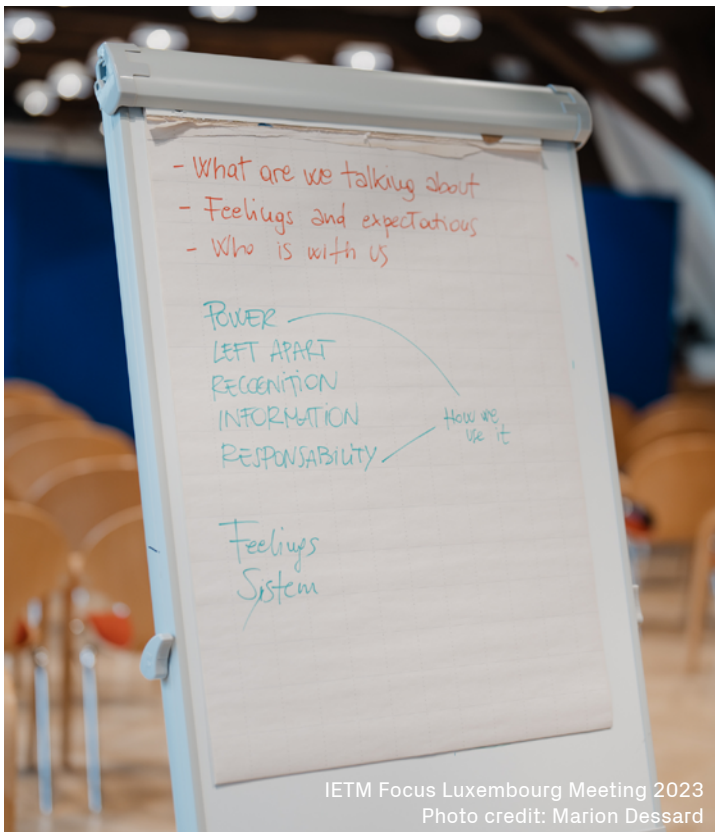 - What are we talking about
- Feelings and expectations
- Who is with us
POWER
LEFT APART
RECOGNITION
INFORMATION
RESPONSABILITY
How we
use it
Feelings
Sistem
IETM Focus Luxembourg Meeting 2023
Photo credit: Marion Dessard